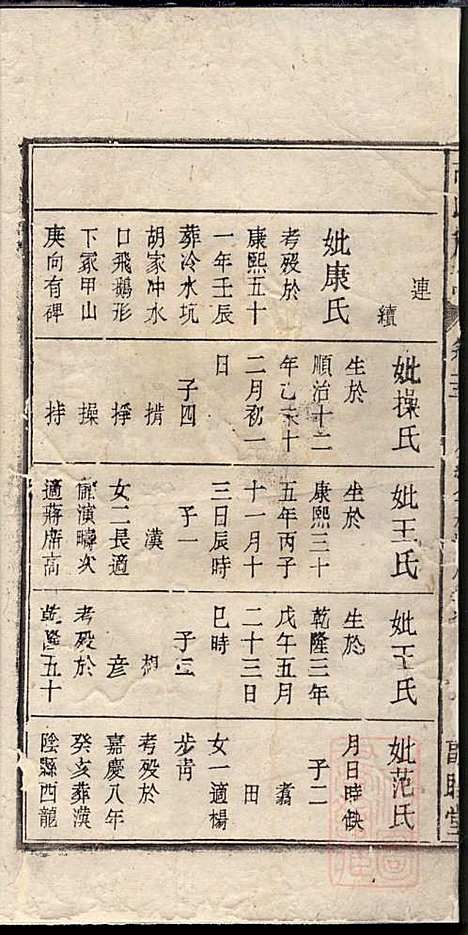 連
續
妣康氏
考殁於
康熙五十
一年壬辰
葬冷水坑
胡家冲水
口飛鵝形
下冢甲山
庚向有碑
妣操氏
生於
順治十二
年乙未十
二月初一
日
子四
揹
掙
操
持
妣王氏
生於
康熙三十
五年丙子
十一月十
三日辰時
子一
漢
女二長適
演疇次
適蔣席高
妣王氏
生於
乾隆三年
戊午五月
二十三日
巳時
子三
彦
考殁於
乾隆五十
妣范氏
月日時缺
子二
翥
田
女一適楊
步青
考殁於
嘉慶八年
癸亥葬漢
陰縣西龍